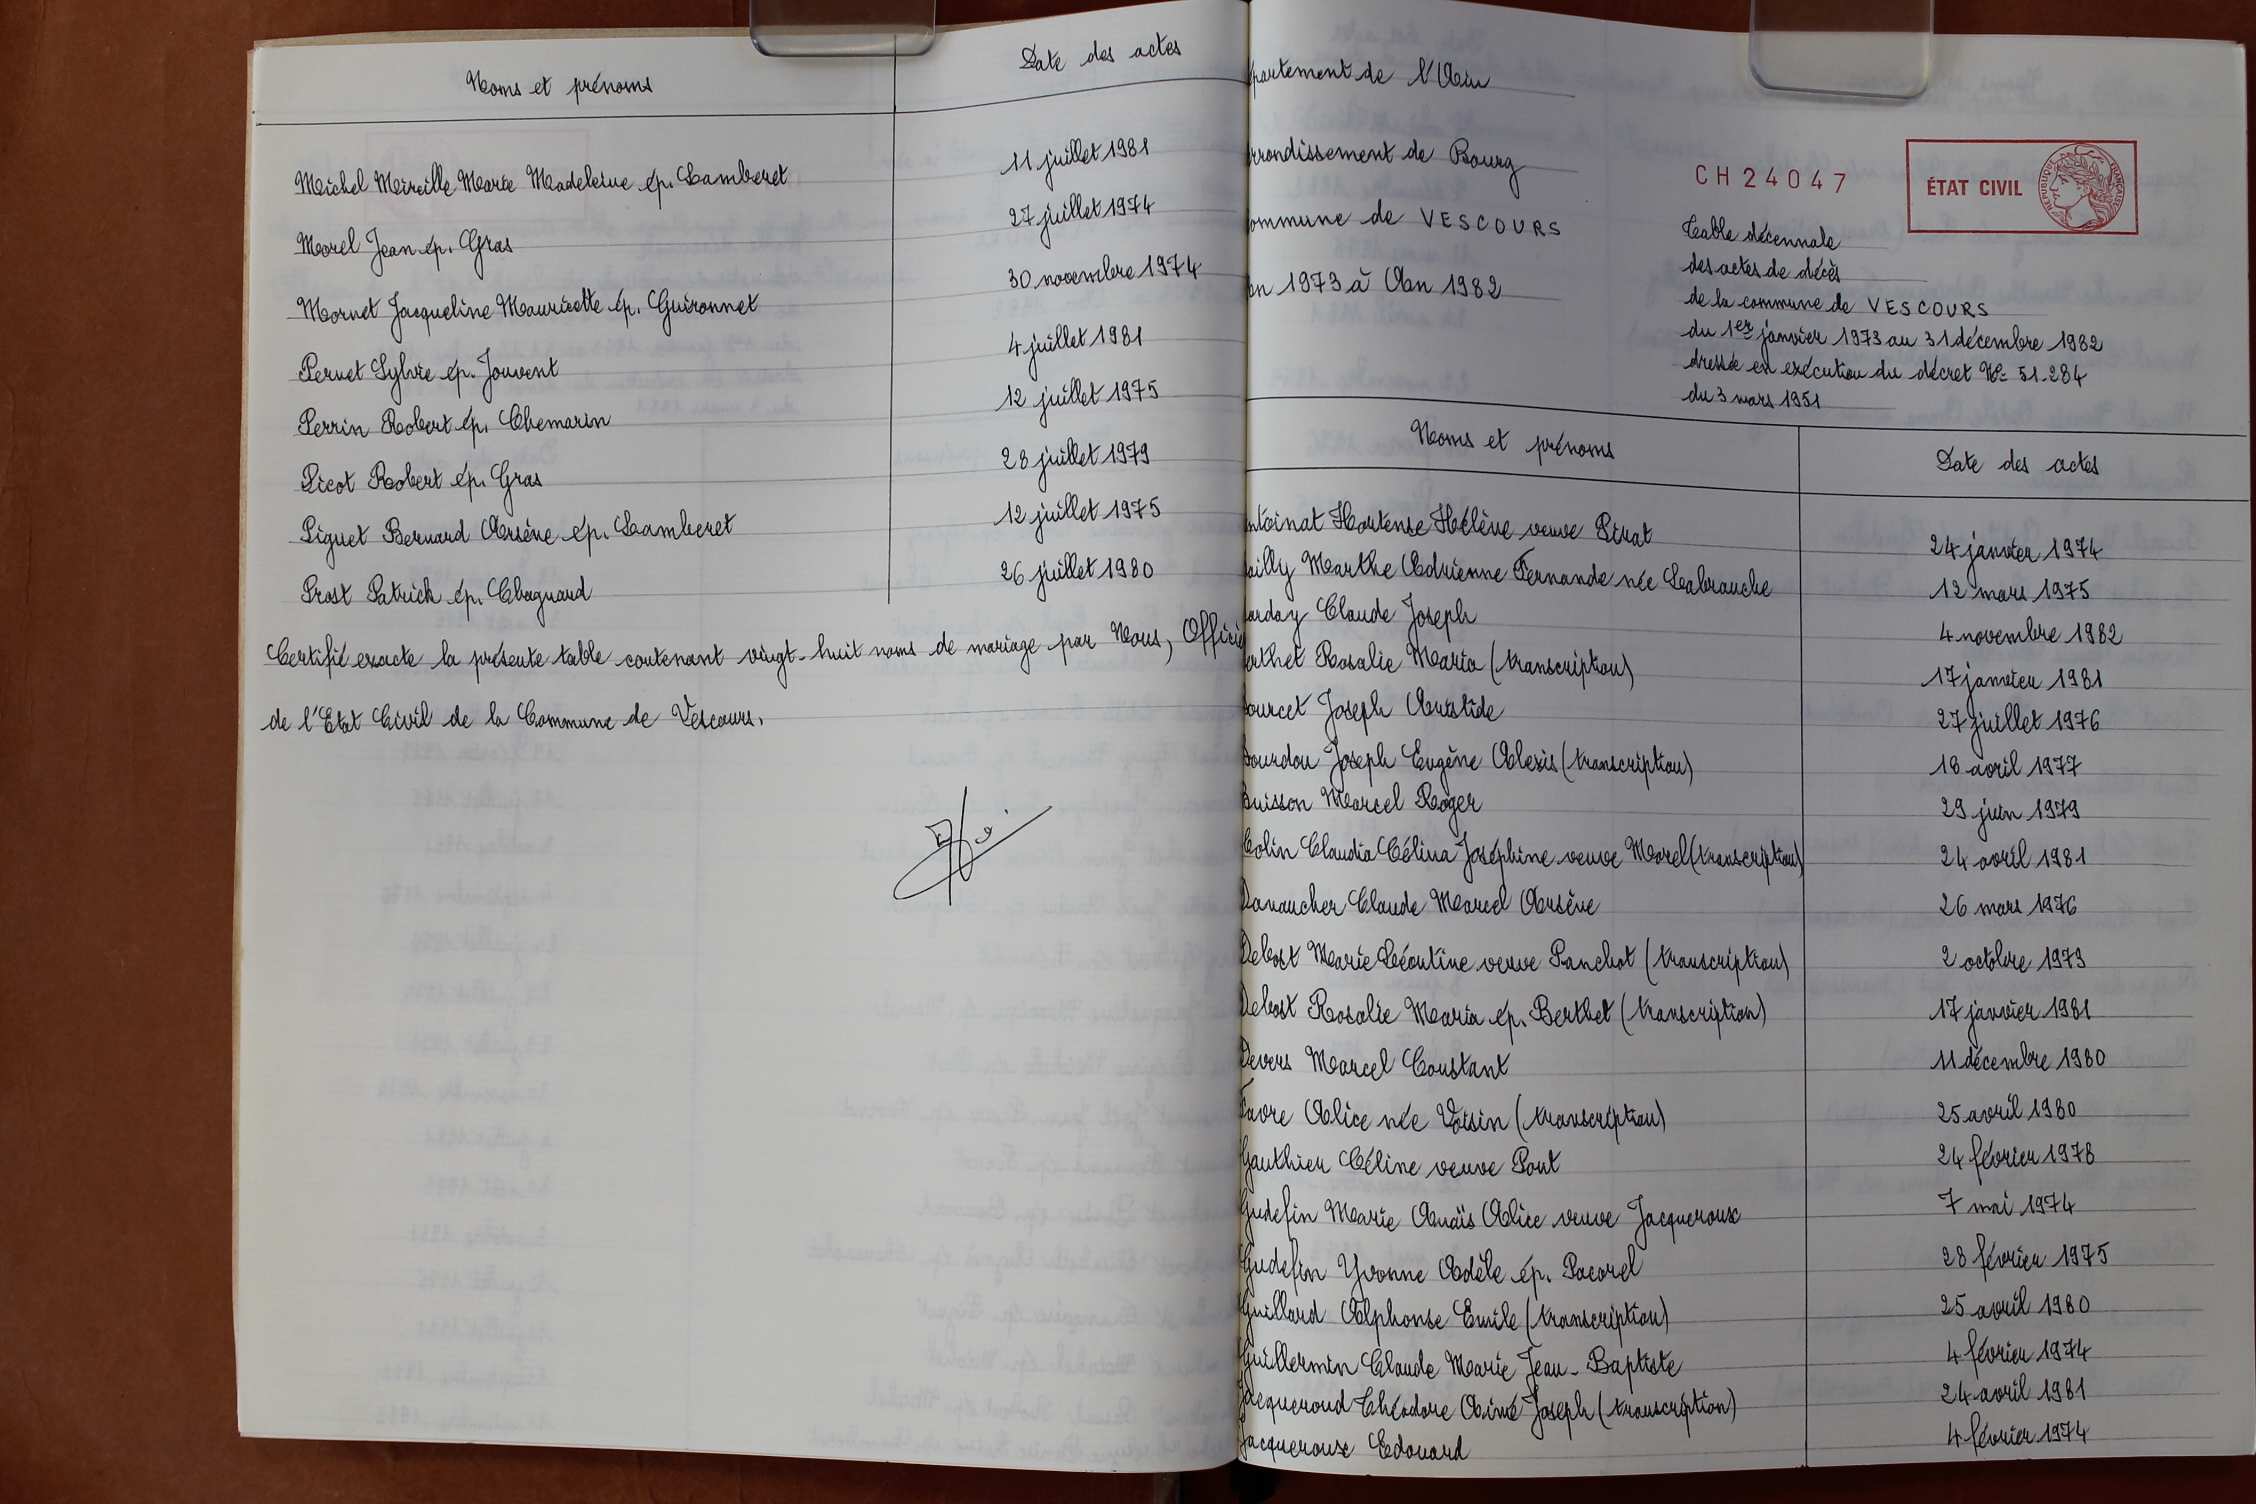 Noms et prénoms Date des actes
Michel Mireille Marie Madeleine ép. Lamberet 11 juillet 1981
Morel Jean ép. Gras 27 juillet 1974
Mornet Jacqueline Mauricette ép. Guironnet 30 novembre 1974
Pernet Sylvie ép. Jouvent 4 juillet 1981
Perrin Robert ép. Chemarin 12 juillet 1975
Picot Robert ép. Gras 28 juillet 1979
Piguet Bernard Arsène ép. Lamberet 12 juillet 1975
Prost Patrick ép. Chagnard 26 juillet 1980
Certifié exacte la présente table contenant vingt-huit noms de mariage par Nous, Officie
de l'Etat Civil de la Commune de Vescours.
partement de l'Ain
rrondissement de Bourg
ommune de VESCOURS
an 1973 à An 1982
CH24047
ÉTAT CIVIL
RÉPUBLIQUE FRANÇAISE
Table décennale
des actes de décès
de la commune de VESCOURS
du 1er janvier 1973 au 31 décembre 1982
dressée en exécution du décret N° 51.284
du 3 mars 1951
Noms et prénoms Date des actes
ntoinat Hortense Hélène veuve Pirat 24 janvier 1974
ailly Marthe Adrienne Fernande née Labranche 12 mars 1975
arday Claude Joseph 4 novembre 1982
erthet Rosalie Maria (transcription) 17 janvier 1981
ourcet Joseph Aristide 27 juillet 1976
Bourdon Joseph Eugène Alexis (transcription) 18 avril 1977
Buisson Marcel Roger 29 juin 1979
Colin Claudia Célina Joséphine veuve Morel (transcription) 24 avril 1981
Danaucher Claude Marcel Arsène 26 mars 1976
Debost Marie Léontine veuve Panchot (transcription) 2 octobre 1979
Debost Rosalie Maria ép. Berthet (transcription) 17 janvier 1981
Devers Marcel Constant 11 décembre 1980
Favre Alice née Voisin (transcription) 25 avril 1980
Gauthier Céline veuve Pont 24 février 1978
Gudefin Marie Anaïs Alice veuve Jacqueroux 7 mai 1974
Gudefin Yvonne Adèle ép. Pacorel 28 février 1975
Guillard Alphonse Emile (transcription) 25 avril 1980
Guillermin Claude Marie Jean-Baptiste 4 février 1974
Jacqueroud Théodore Aimé Joseph (transcription) 24 avril 1981
Jacqueroux Edouard 4 février 1974